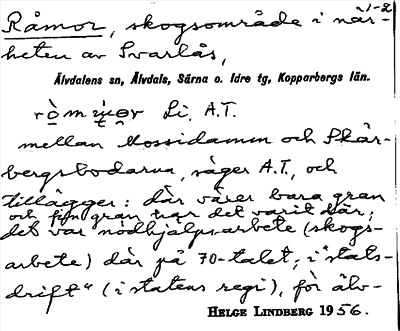 1-2
Råmor, skogsområde i när-
heten av Svarlås,
Älvdalens sn, Älvdals, Särna o. Idre tg, Kopparbergs län.
Li. A.T.
mellan Mossidamm och Skär-
bergsbodarna, säger A.T., och
tillägger: där växer bara gran
och fin gran har det varit där;
det var nödhjälpsarbete (skogs-
arbete) där på 70-talet; i "stats-
drift" (i statens regi), för älv-
HELGE LINDBERG 1956.